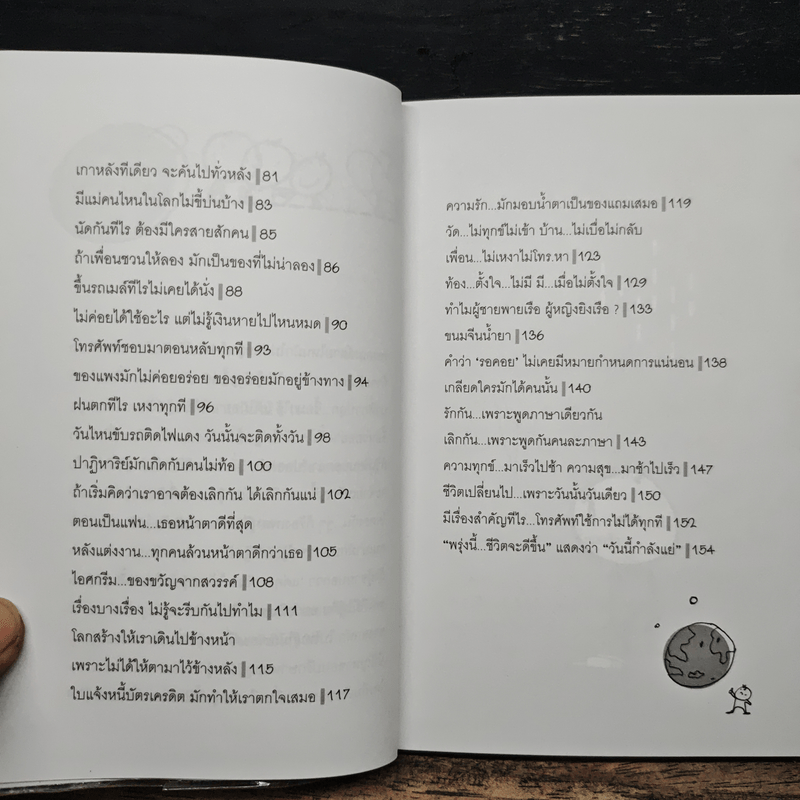 เกาหลังทีเดียว จะคันไปทั่วหลัง 81
มีแม่คนไหนในโลกไม่ขี้บ่นบ้าง 83
นัดกันทีไร ต้องมีใครสายสักคน 85
ถ้าเพื่อนชวนให้ลอง มักเป็นของที่ไม่น่าลอง 86
ขึ้นรถเมล์ทีไรไม่เคยได้นั่ง 88
ไม่ค่อยได้ใช้อะไร แต่ไม่รู้เงินหายไปไหนหมด 90
โทรศัพท์ชอบมาตอนหลับทุกที 93
ของแพงมักไม่ค่อยอร่อย ของอร่อยมักอยู่ข้างทาง 94
ฝนตกทีไร เหงาทุกที 96
วันไหนขับรถติดไฟแดง วันนั้นจะติดทั้งวัน 98
ปาฏิหาริย์มักเกิดกับคนไม่ท้อ 100
ถ้าเริ่มคิดว่าเราอาจต้องเลิกกัน ได้เลิกกันแน่ 102
ตอนเป็นแฟน...เธอหน้าตาดีที่สุด
หลังแต่งงาน...ทุกคนล้วนหน้าตาดีกว่าเธอ 105
ไอศกรีม...ของขวัญจากสวรรค์ 108
เรื่องบางเรื่อง ไม่รู้จะรีบกันไปทำไม 111
โลกสร้างให้เราเดินไปข้างหน้า
เพราะไม่ได้ให้ตามาไว้ข้างหลัง 115
ใบแจ้งหนี้บัตรเครดิต มักทำให้เราตกใจเสมอ 117
ความรัก...มักมอบน้ำตาเป็นของแถมเสมอ 119
วัด...ไม่ทุกข์ไม่เข้า บ้าน...ไม่เบื่อไม่กลับ
เพื่อน...ไม่เหงาไม่โทร.หา 123
ท้อง...ตั้งใจ...ไม่มี มี...เมื่อไม่ตั้งใจ 129
ทำไมผู้ชายพายเรือ ผู้หญิงยิงเรือ ? 133
ขนมจีนน้ำยา 136
คำว่า ‘รอคอย’ ไม่เคยมีหมายกำหนดการแน่นอน 138
เกลียดใครมักได้คนนั้น 140
รักกัน...เพราะพูดภาษาเดียวกัน
เลิกกัน...เพราะพูดกันคนละภาษา 143
ความทุกข์...มาเร็วไปช้า ความสุข...มาช้าไปเร็ว 147
ชีวิตเปลี่ยนไป...เพราะวันนั้นวันเดียว 150
มีเรื่องสำคัญทีไร...โทรศัพท์ใช้การไม่ได้ทุกที 152
“พรุ่งนี้...ชีวิตจะดีขึ้น” แสดงว่า “วันนี้กำลังแย่” 154